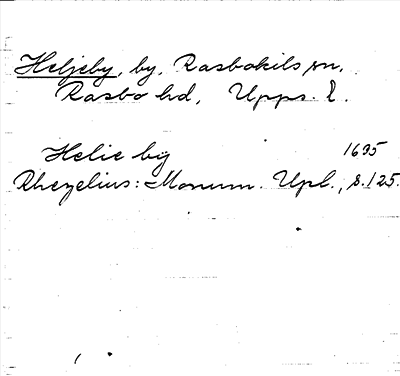 Heljeby, by, Rasbokils sn,
Rasbo hd, Upps. l.
Helie by 1635
Rhezelius: Monum. Upl., s. 125.